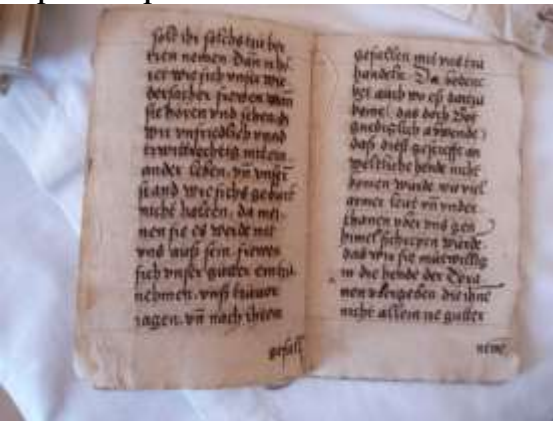 solt ihr solchs zu her
tzen nemen Dan
wie sich unsere wie
dersacher frewen wan
sie hören und sehen dz
wir unfriedlich unnd
zwittrechtig mitein
ander leben, vn unser
stand wie sichs geburt
nicht halten, da mei
nen sie es werde mit
uns auß sein, frewen
sich unser gütter
nehmen, unß
iagen, vn nach ihrem
gefall
gefallen mit uns zu
handeln. Da bedenc
ket auch wo eß dartzu
keme, das doch Got
gnediglich abwende
daß dieß geschefft an
weltliche hende nicht
komen würde wie viel
armer leut vn under
thanen uber uns gen
himel schreyen würde
das wir sie mutwillig
in die hende der
nen ubergeben die ihne
nicht allein ire gütter
neme